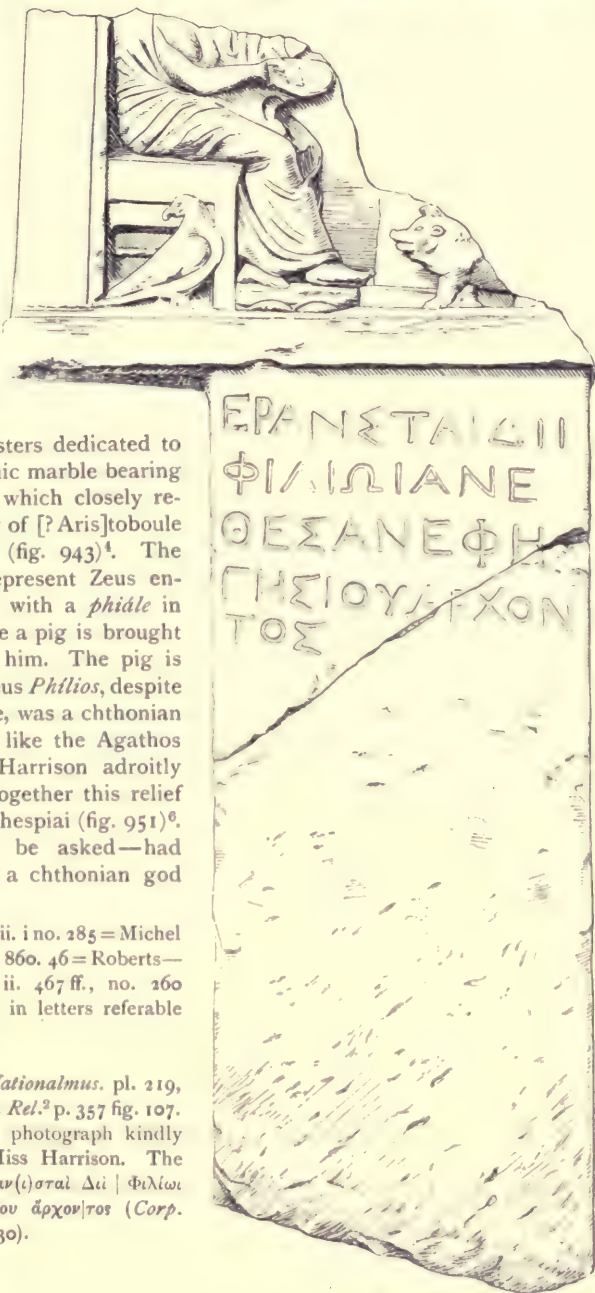 ΕΡΑΝΣΤΑΙΔΙΙ
ΦΙΛΙΩΙΑΝΕ
ΘΕΣΑΝΕΦΗ
ΓΗΣΙΟΥΑΡΧΟΝ
ΤΟΣ
sters dedicated to
ic marble bearing
which closely re-
of [? Aris]toboule
(fig. 943)⁴. The
epresent Zeus en-
with a phiále in
e a pig is brought
him. The pig is
eus Phílios, despite
e, was a chthonian
like the Agathos
Harrison adroitly
ogether this relief
hespiai (fig. 951)⁶.
be asked—had
a chthonian god
ii. i no. 285 = Michel
860. 46 = Roberts—
ii. 467 ff., no. 260
in letters referable
Nationalmus. pl. 219,
Rel.² p. 357 fig. 107.
photograph kindly
Miss Harrison. The
αν(ι)σταὶ Διὶ | Φιλίωι
ου ἄρχον|τος (Corp.
30).